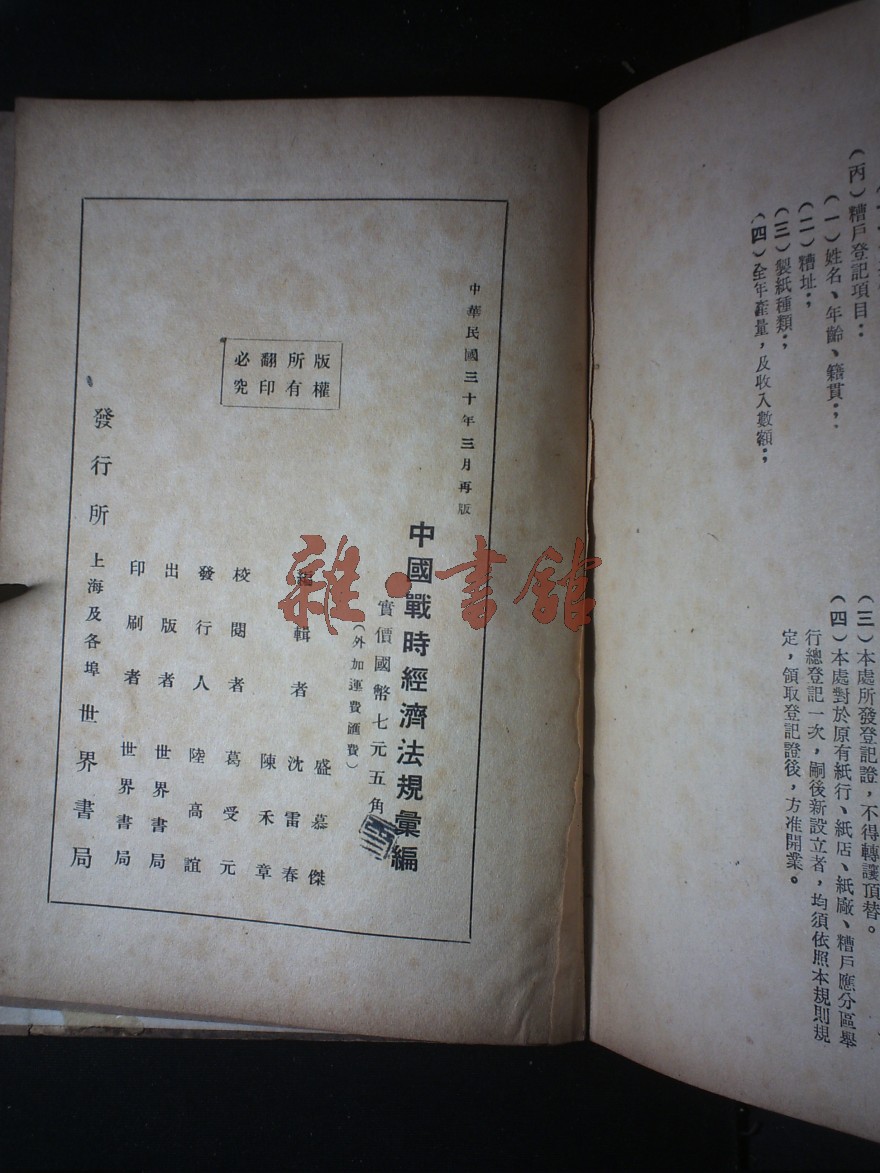 (丙)糟戶登記項目：
(一)姓名、年齡、籍貫；
(二)糟址；
(三)製紙種類；
(四)全年產量，及收入數額；
(三)本處所發登記證，不得轉讓頂替。
(四)本處對於原有紙行、紙店、紙廠、糟戶應分區舉
行總登記一次，嗣後新設立者，均須依照本規則規
定，領取登記證後，方准開業。
中華民國三十年三月再版
中國戰時經濟法規彙編
實價國幣七元五角
(外加運費匯費)
版權
所有
翻印
必究
編輯者
盛慕傑
沈雷春
陳禾章
校閱者 葛受元
發行人 陸高誼
出版者 世界書局
印刷者 世界書局
發行所 上海及各埠 世界書局
雜·書館